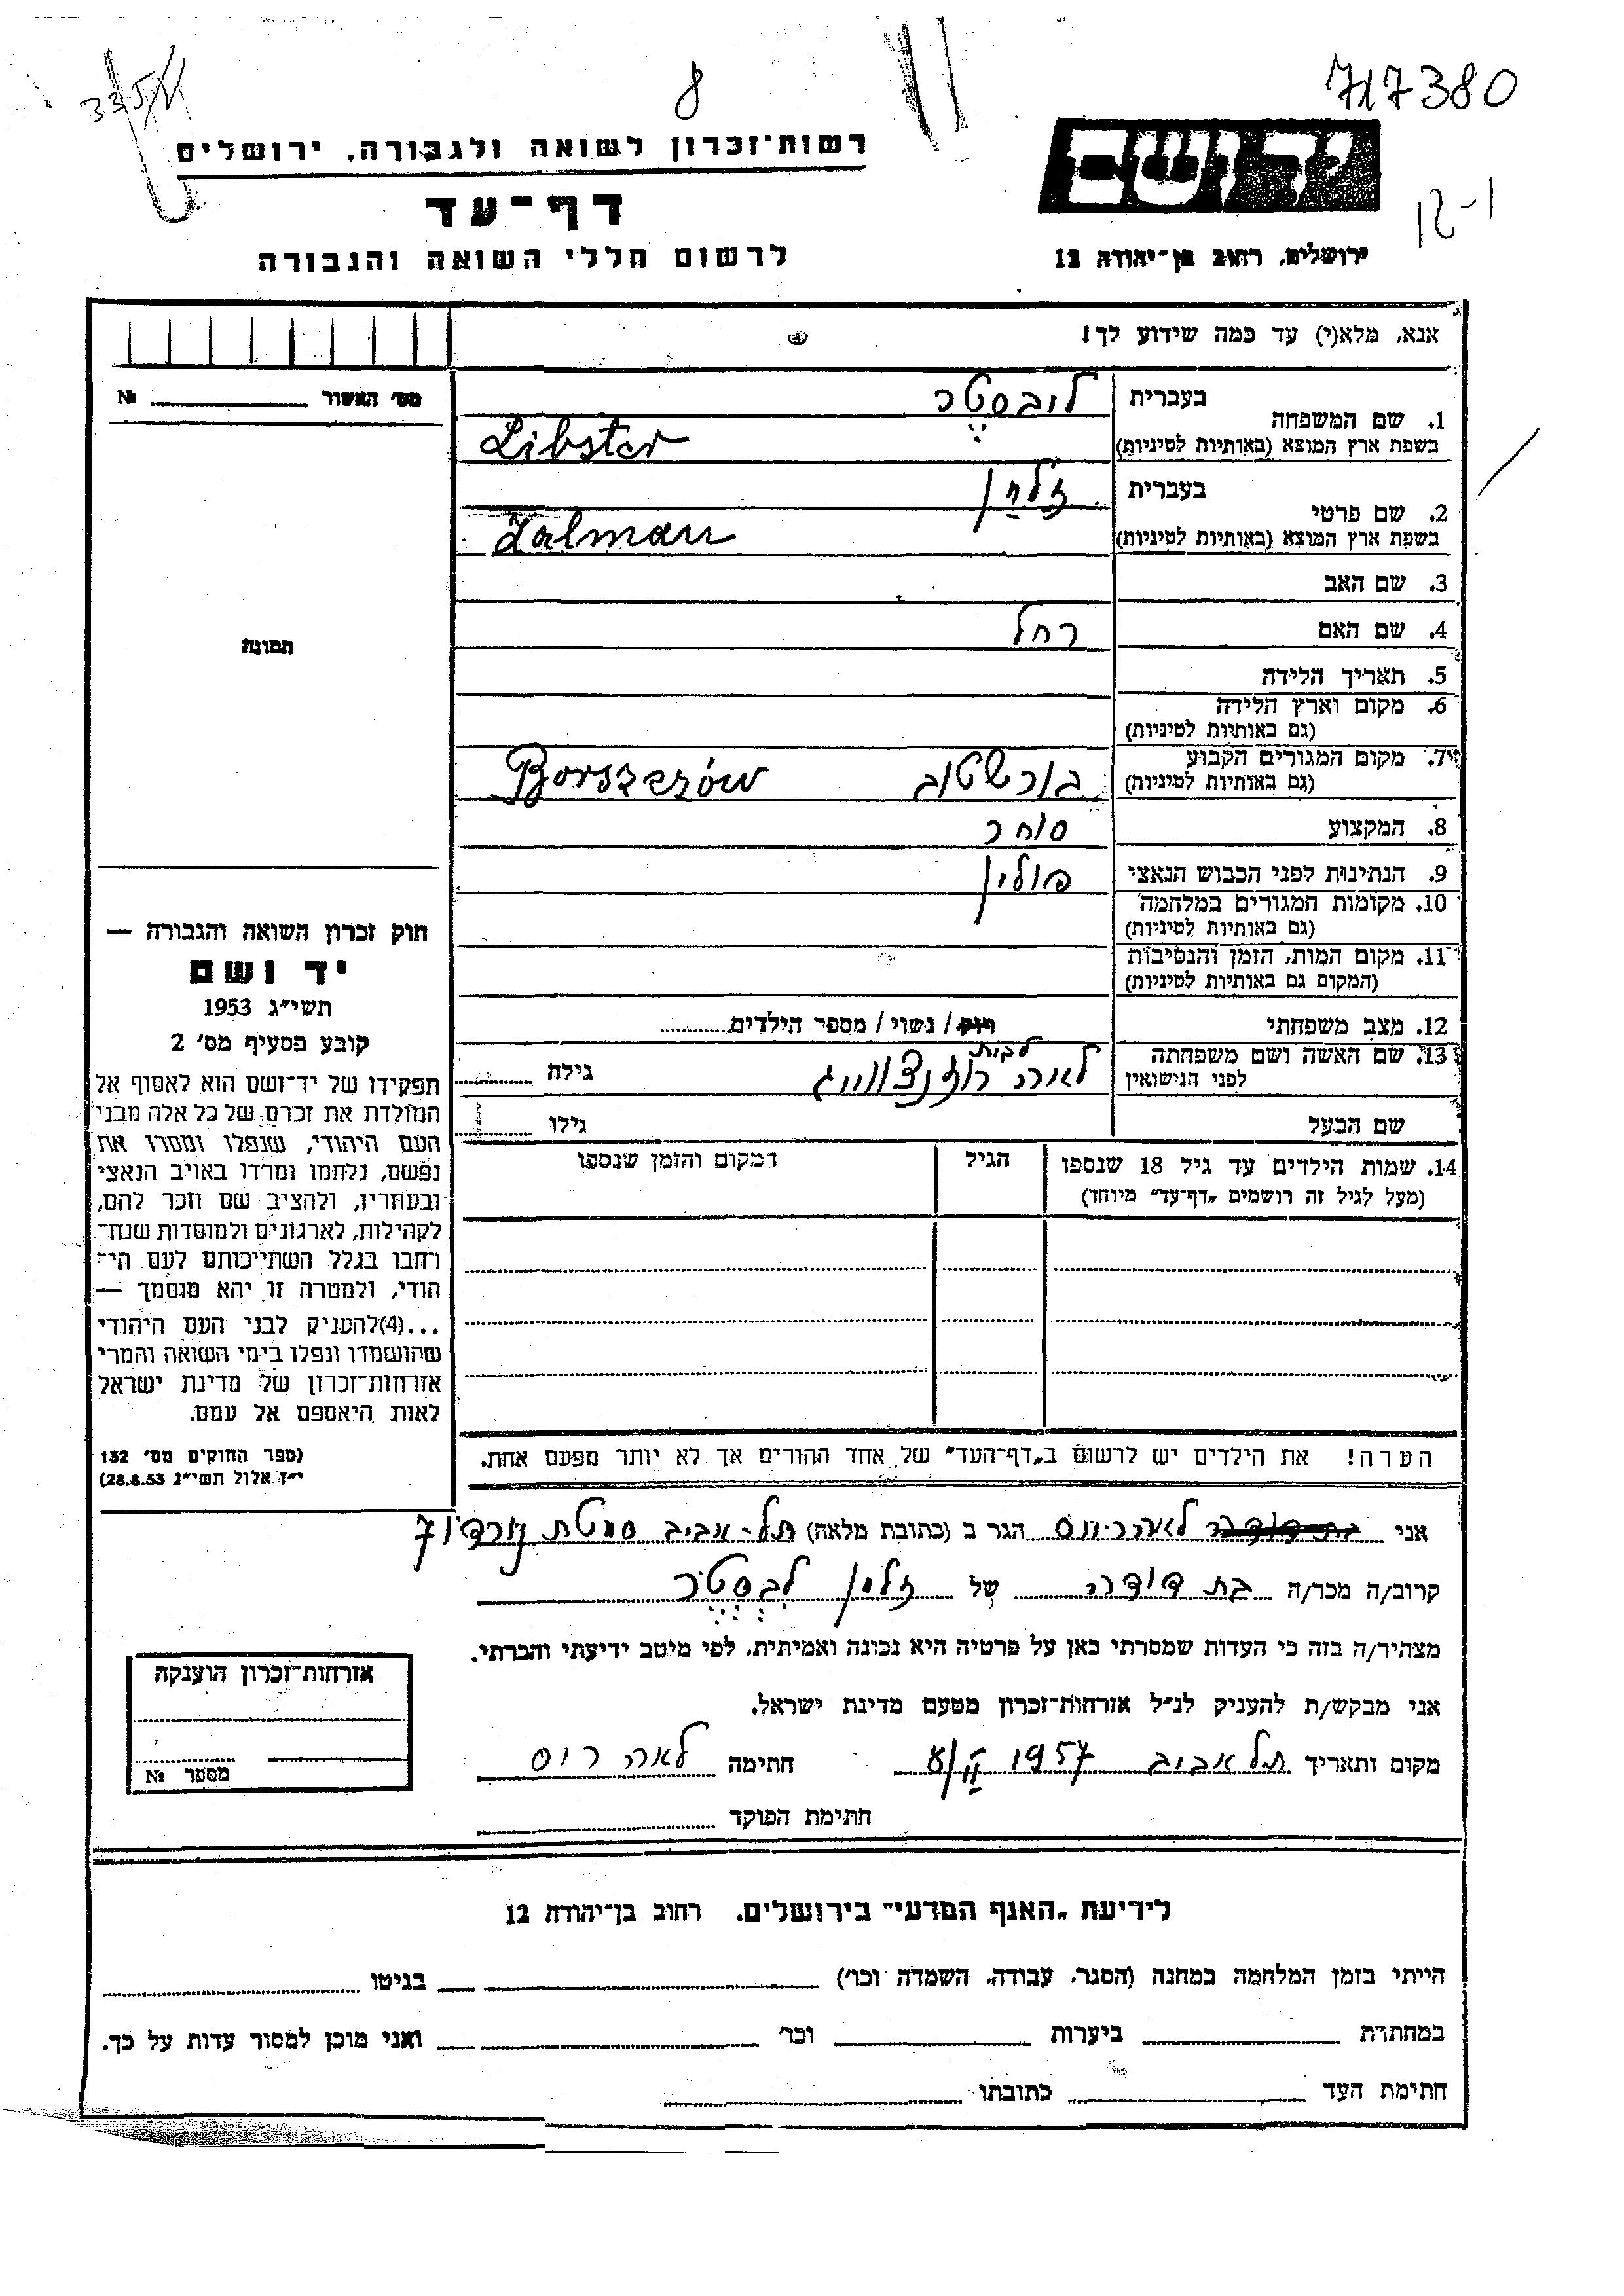 8
717380
רשות־זכרון לשואה ולגבורה, ירושלים
יד ושם
דף־עד
לרשום חללי השואה והגבורה
ירושלים, רחוב בן־יהודה 12
אנא, מלא(י) עד כמה שידוע לך!
מס׳ האשור № 
1. שם המשפחה בעברית ליבסטר
בשפת ארץ המוצא (באותיות לטיניות) Libster
2. שם פרטי בעברית זלמן
בשפת ארץ המוצא (באותיות לטיניות) Zalman
3. שם האב
4. שם האם רחל
תמונה
5. תאריך הלידה
6. מקום וארץ הלידה
(גם באותיות לטיניות)
7. מקום המגורים הקבוע בורשטוב Borszczów
(גם באותיות לטיניות)
8. המקצוע סוחר
9. הנתינות לפני הכבוש הנאצי פולין
10. מקומות המגורים במלחמה
(גם באותיות לטיניות)
11. מקום המות, הזמן והנסיבות
(המקום גם באותיות לטיניות)
12. מצב משפחתי רווק / נשוי / מספר הילדים
13. שם האשה ושם משפחתה לאה לבית רוזנצווייג גילה
לפני הנישואין
שם הבעל גילו
14. שמות הילדים עד גיל 18 שנספו הגיל המקום והזמן שנספו
(מעל לגיל זה רושמים „דף־עד״ מיוחד)
הערה! את הילדים יש לרשום ב„דף־העד״ של אחד ההורים אך לא יותר מפעם אחת.
חוק זכרון השואה והגבורה —
יד ושם
תשי״ג 1953
קובע בסעיף מס׳ 2
תפקידו של יד־ושם הוא לאסוף אל
המולדת את זכרם של כל אלה מבני
העם היהודי, שנפלו ומסרו את
נפשם, נלחמו ומרדו באויב הנאצי
ובעוזריו, ולהציב שם וזכר להם,
לקהילות, לארגונים ולמוסדות שנח־
רחבו בגלל השתייכותם לעם הי־
הודי, ולמטרה זו יהא מוסמך —
...(4)להעניק לבני העם היהודי
שהושמדו ונפלו בימי השואה והמרי
אזרחות־זכרון של מדינת ישראל
לאות היאספם אל עמם.
(ספר החוקים מס׳ 132
י״ז אלול תשי״ג 28.8.53)
אני לאה ריוס הגר ב (כתובת מלאה) תל-אביב סמטת נורדוי 7
קרוב/ה מכר/ה בת דודה של זלמן ליבסטר
מצהיר/ה בזה כי העדות שמסרתי כאן על פרטיה היא נכונה ואמיתית, לפי מיטב ידיעתי והכרתי.
אני מבקש/ת להעניק לנ״ל אזרחות־זכרון מטעם מדינת ישראל.
מקום ותאריך תל אביב 1957 חתימה לאה ריוס
חתימת הפוקד
אזרחות־זכרון הוענקה
מספר №
לידיעת „האגף המדעי״ בירושלים, רחוב בן־יהודה 12
הייתי בזמן המלחמה במחנה (הסגר, עבודה, השמדה וכו׳) בגיטו
במחתרת ביערות וכו׳ ואני מוכן למסור עדות על כך.
חתימת העד כתובתו